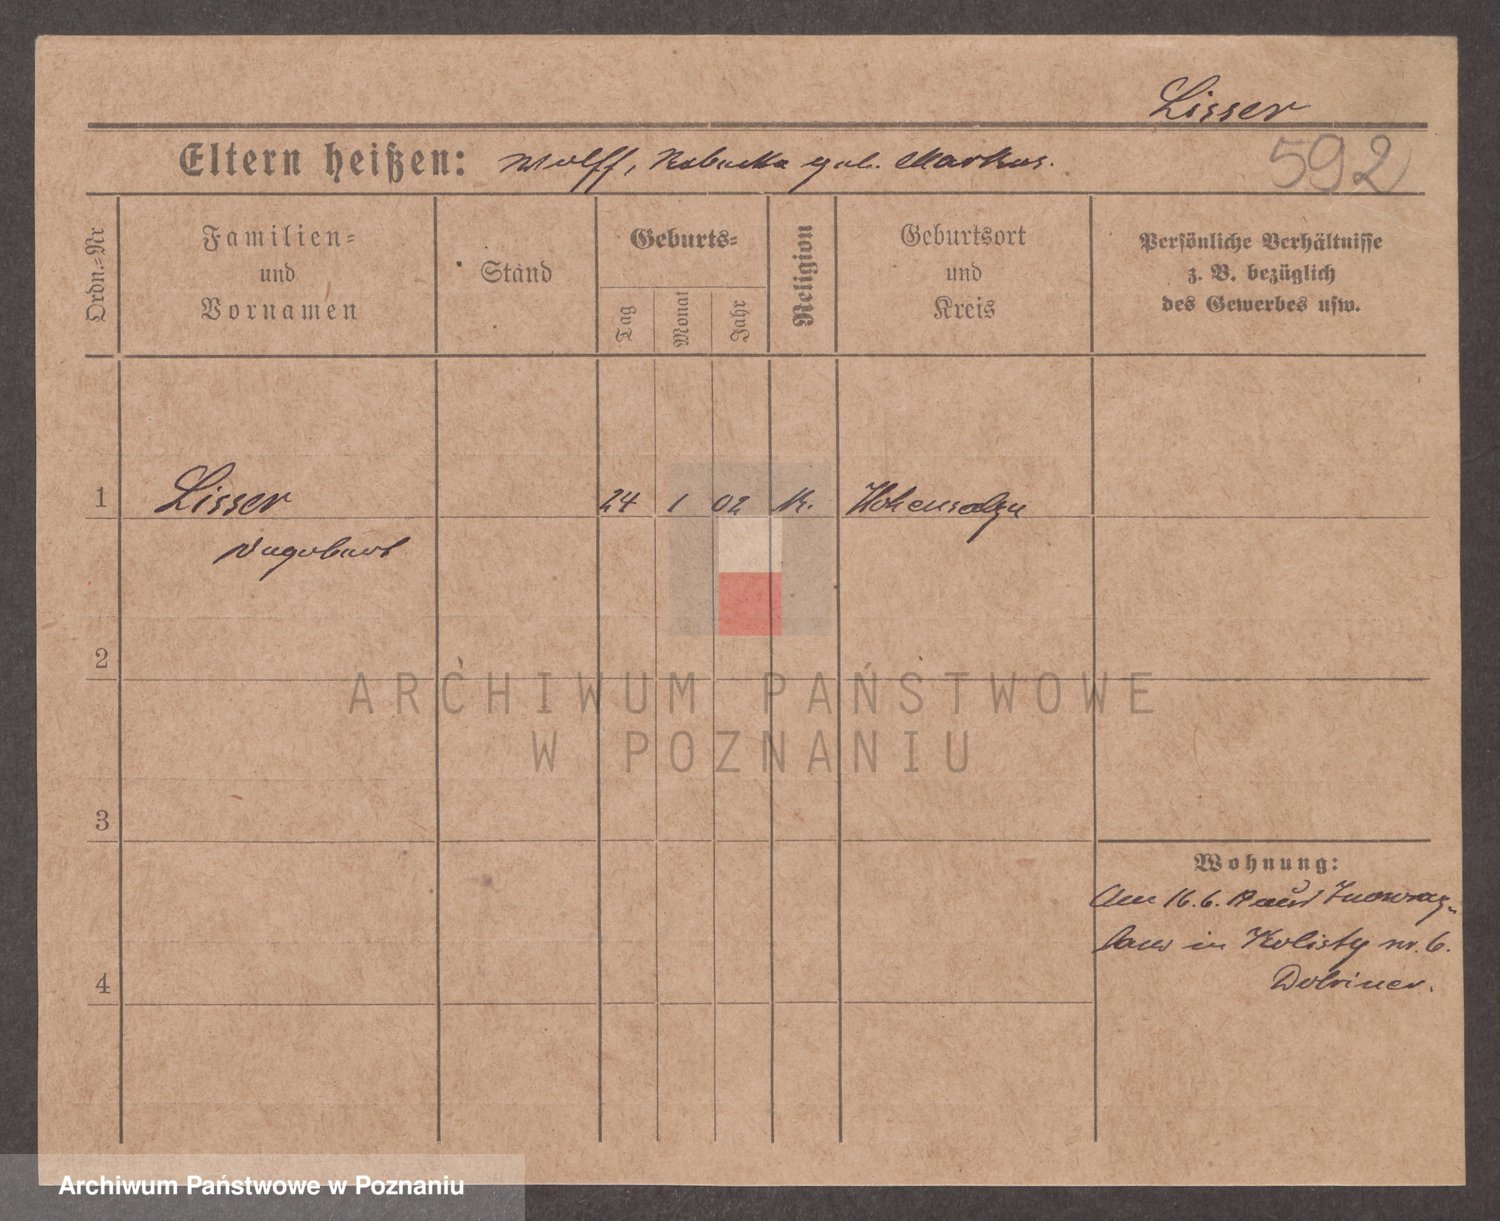 Lisser
Eltern heißen: Wolff, Rebecka geb. Markus.
592
Ordn.-Nr
Familien-
und
Vornamen
Stand
Geburts-
Tag
Monat
Jahr
Religion
Geburtsort
und
Kreis
Persönliche Verhältnisse
z. B. bezüglich
des Gewerbes usw.
1 Lisser 24 1 02 M. Hohensalza
2
3
Wohnung:
Am 16.6. Inowraz-
law in Kolisty nr. 6.
4
Dobriner.
ARCHIWUM PAŃSTWOWE
W POZNANIU
Archiwum Państwowe w Poznaniu